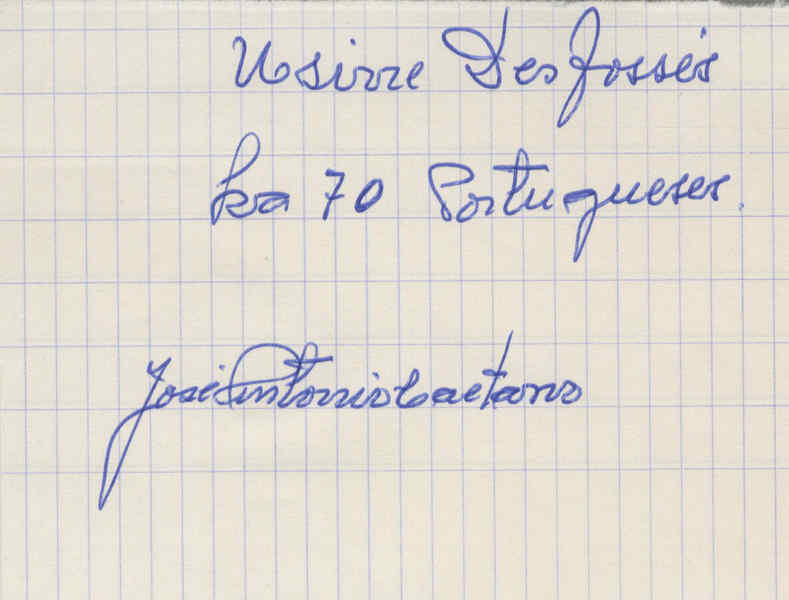 Usirre Desfossés
kra 70 Portugueses.
José Antonio Caetano